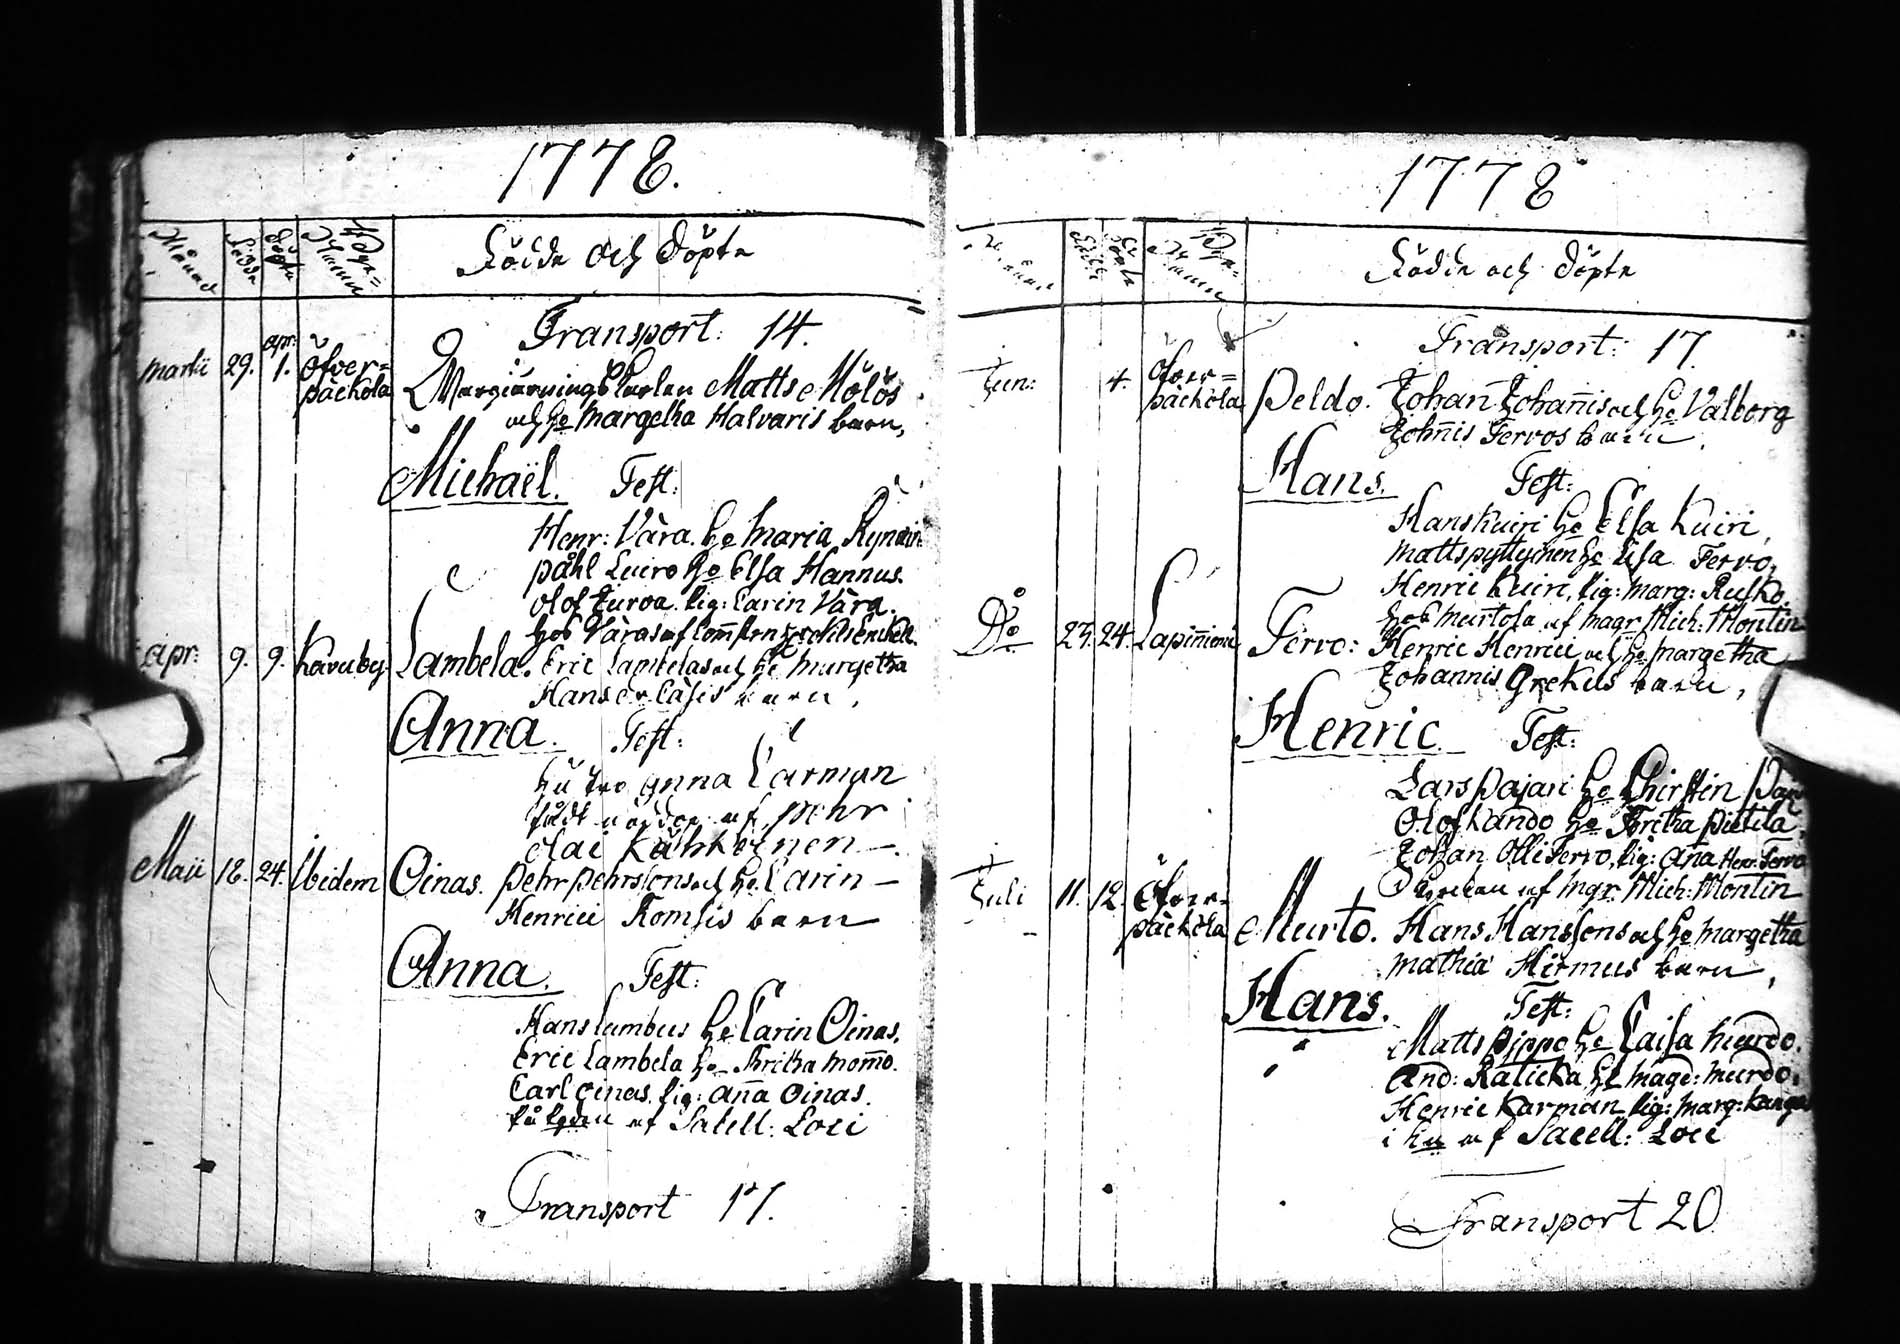 1778.
Månad Födde Döpte Bye-Namn Födde och döpte
Transport: 14.
Martii 29. apr: 1. Öfver=
päckölä Matts Mölös
och ho Margetha Halvaris barn,
Michaël. Test:
Henr: Vära. ho Maria
påhl Luiro ho Elsa Hannus.
Olof Juroa. pig: Carin Vära.
hos Väras af
apr: 9. 9. Karuby Lambela. Eric Lambelas och ho Margetha
Hans barn,
Anna. Test:
Anna Carman
af pehr
olai
Maii 18. 24. Ibidem Oinas. pehr pehrssons och ho Carin
Henrici Romsis barn
Anna. Test:
Hans Lambus ho Carin Oinas.
Eric Lambela ho Britha mom̄o.
Carl oinas. pig: an̄a oinas.
af Sacell: Loci
Transport 17.
1778
Månad Födde Döpte Bye-Namn Födde och döpte
Transport: 17.
Jun: 4. Öfver=
päckölä Peldo. Johan Johan̄is och ho Valborg
Joh̄nis Fervos barn,
Hans. Test:
Hans Kuiri ho Elsa Kuiri,
Matts ho Elsa Fervo,
Henric Kuiri, pig: marg: Rusko,
hos Murtola af magr. Mich: Montin
Do 23. 24. Lapin̄iemi Fervo: Henric Henrici och ho Margetha
Johannis Grekus barn,
Henric. Test:
Lars Pajari ho Chirstin
Olof Kando ho Britha Pietilä.
Johan Olli Fervo, pig: An̄a Henr. Fervo
af Mgr. Mich: Montin
Juli 11. 12. Öfver=
päckölä Murto. Hans Hanssons och ho Margetha
Mathiæ Hirmus barn,
Hans. Test:
Matts Pippo ho Caisa Murdo.
And: Raticka ho Magd: Murdo.
Henric Karman pig: Marg: Kangas
i af Sacell: Loci
Transport 20